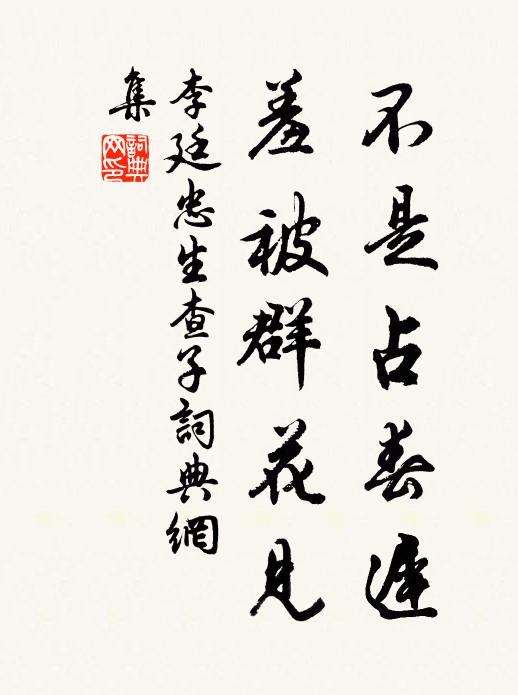 不是占春遲
羞被群花見
李廷忠生查子詞典網
集
詞典網印